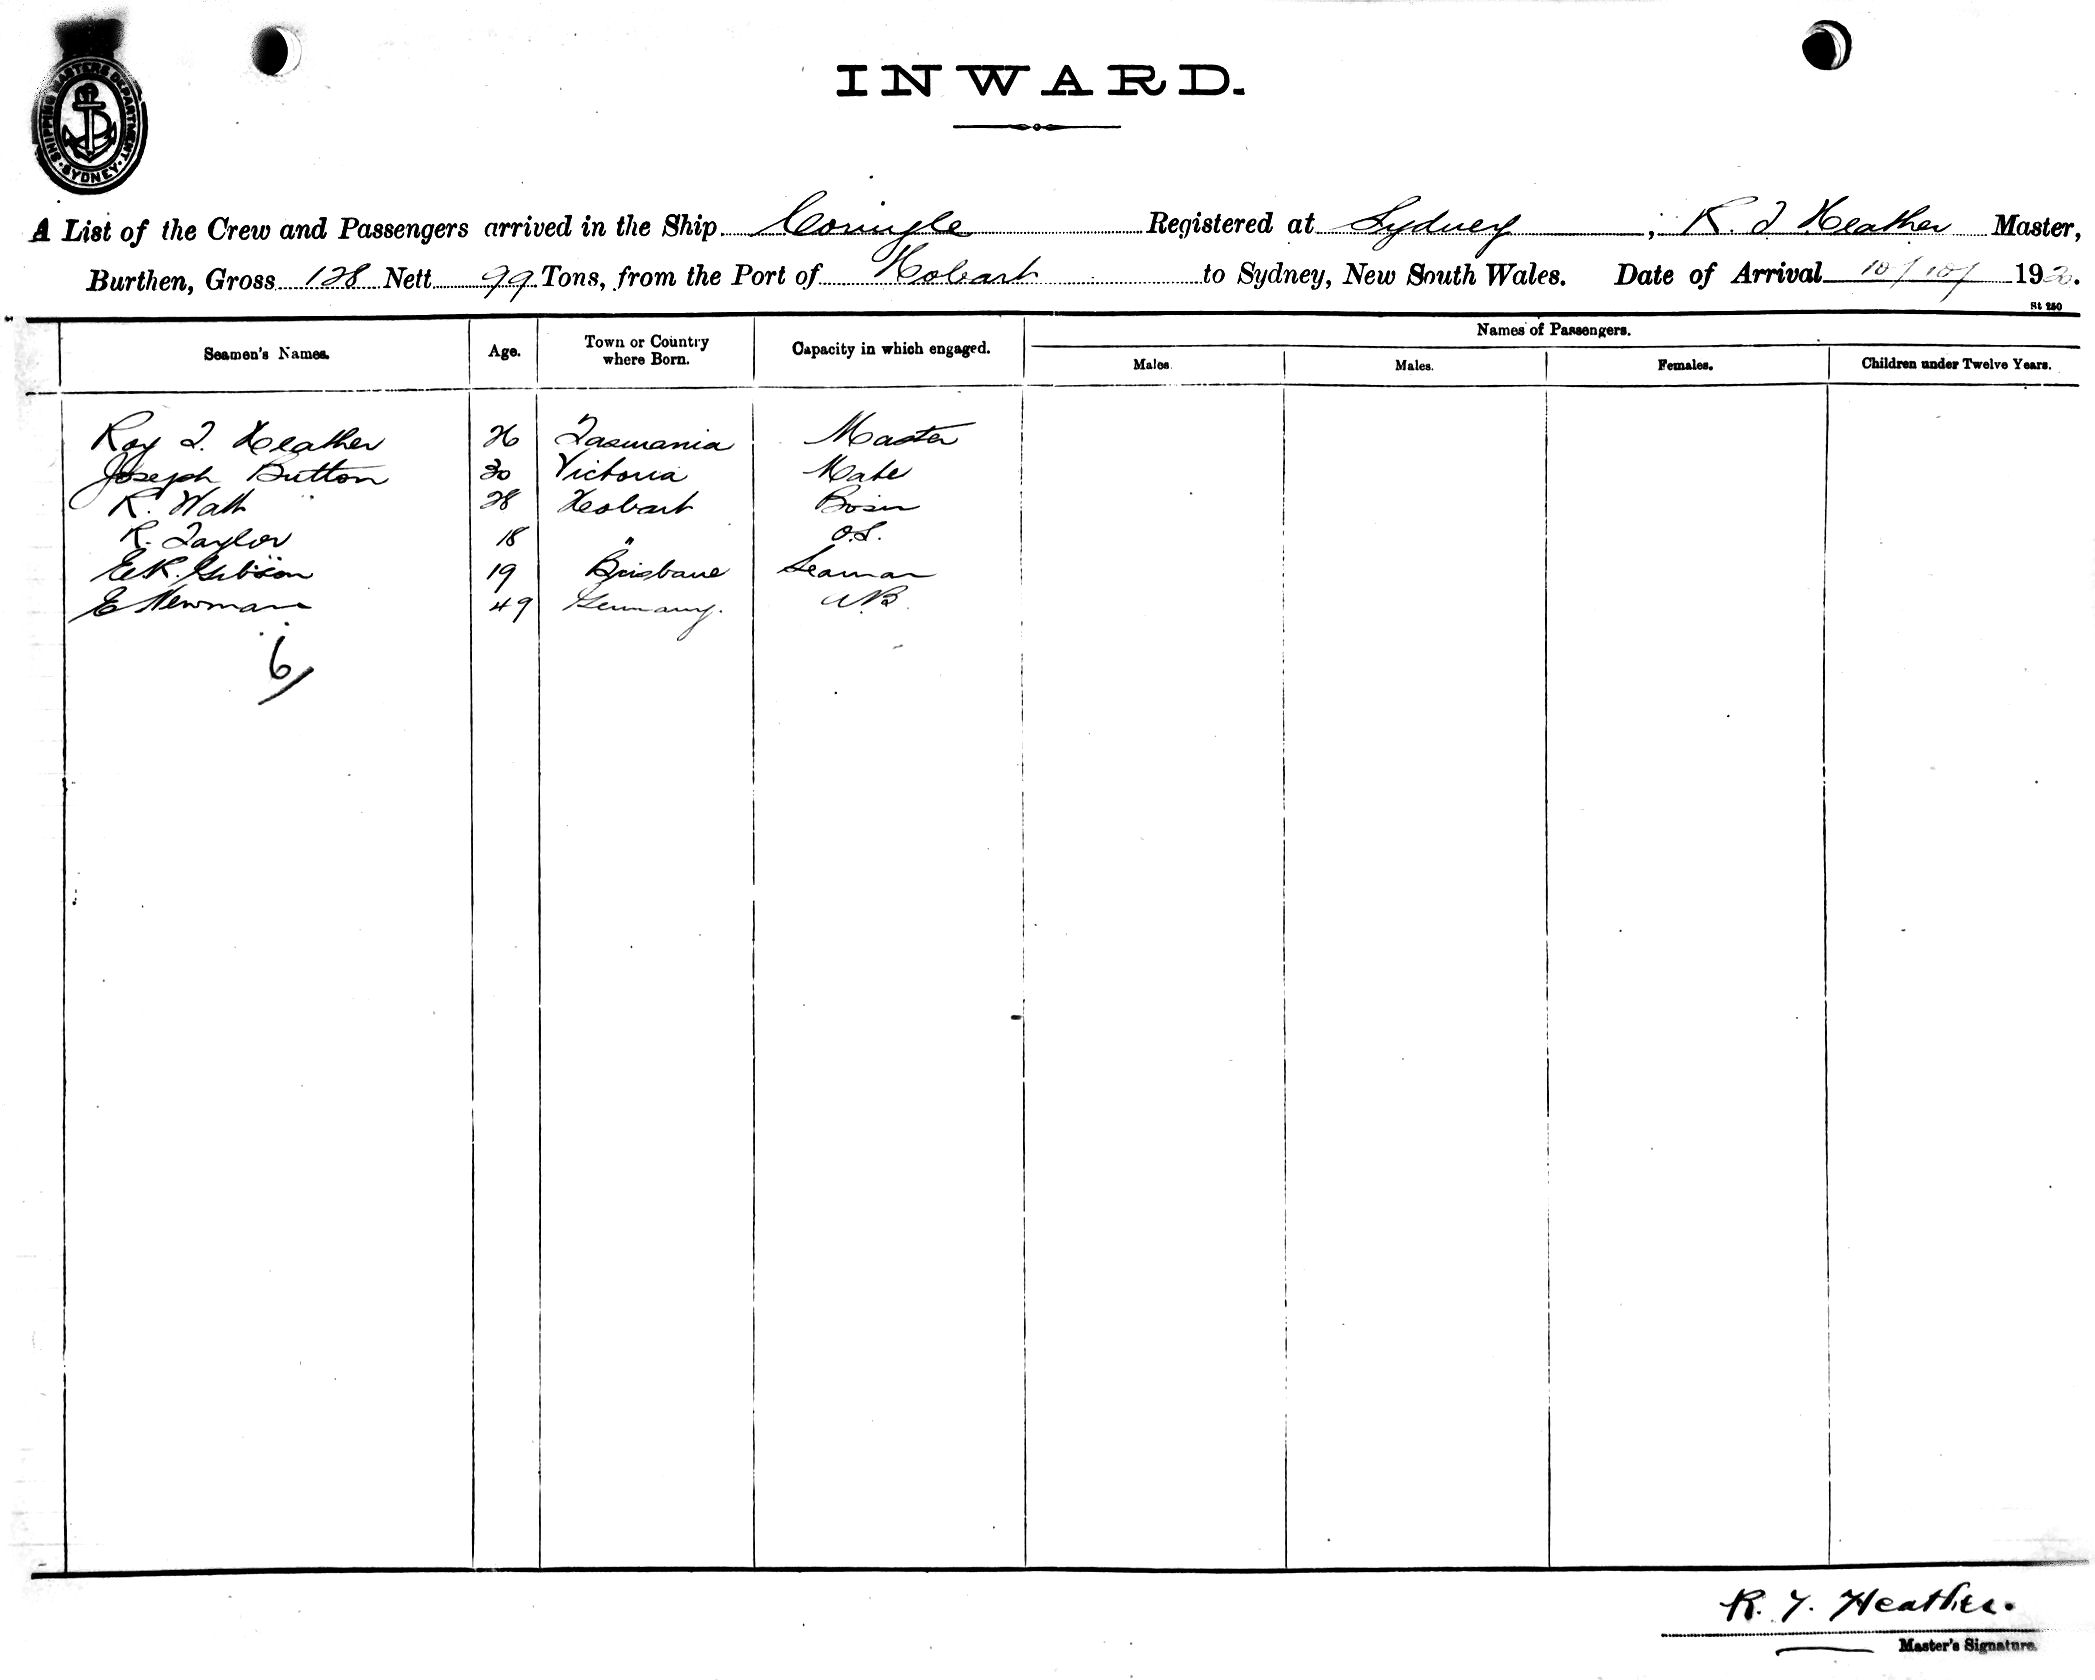 SHIPPING MASTERS DEPARTMENT. SYDNEY
INWARD.
A List of the Crew and Passengers arrived in the Ship Coringle Registered at Sydney ; R. T Heather Master,
Burthen, Gross 128 Nett 99 Tons, from the Port of Hobart to Sydney, New South Wales. Date of Arrival 10/10/ 1920.
St 250
Seamen's Names. Age. Town or Country where Born. Capacity in which engaged. Names of Passengers.
Males Males. Females. Children under Twelve Years.
Roy T. Heather 26 Tasmania Master
Joseph Button 30 Victoria Mate
R. Watt 28 Hobart Bosun
R. Taylor 18 " O.S.
E.R. Gibson 19 Brisbane Seaman
E Newman 49 Germany. A.B.
6/
R. T. Heather.
Master's Signature.